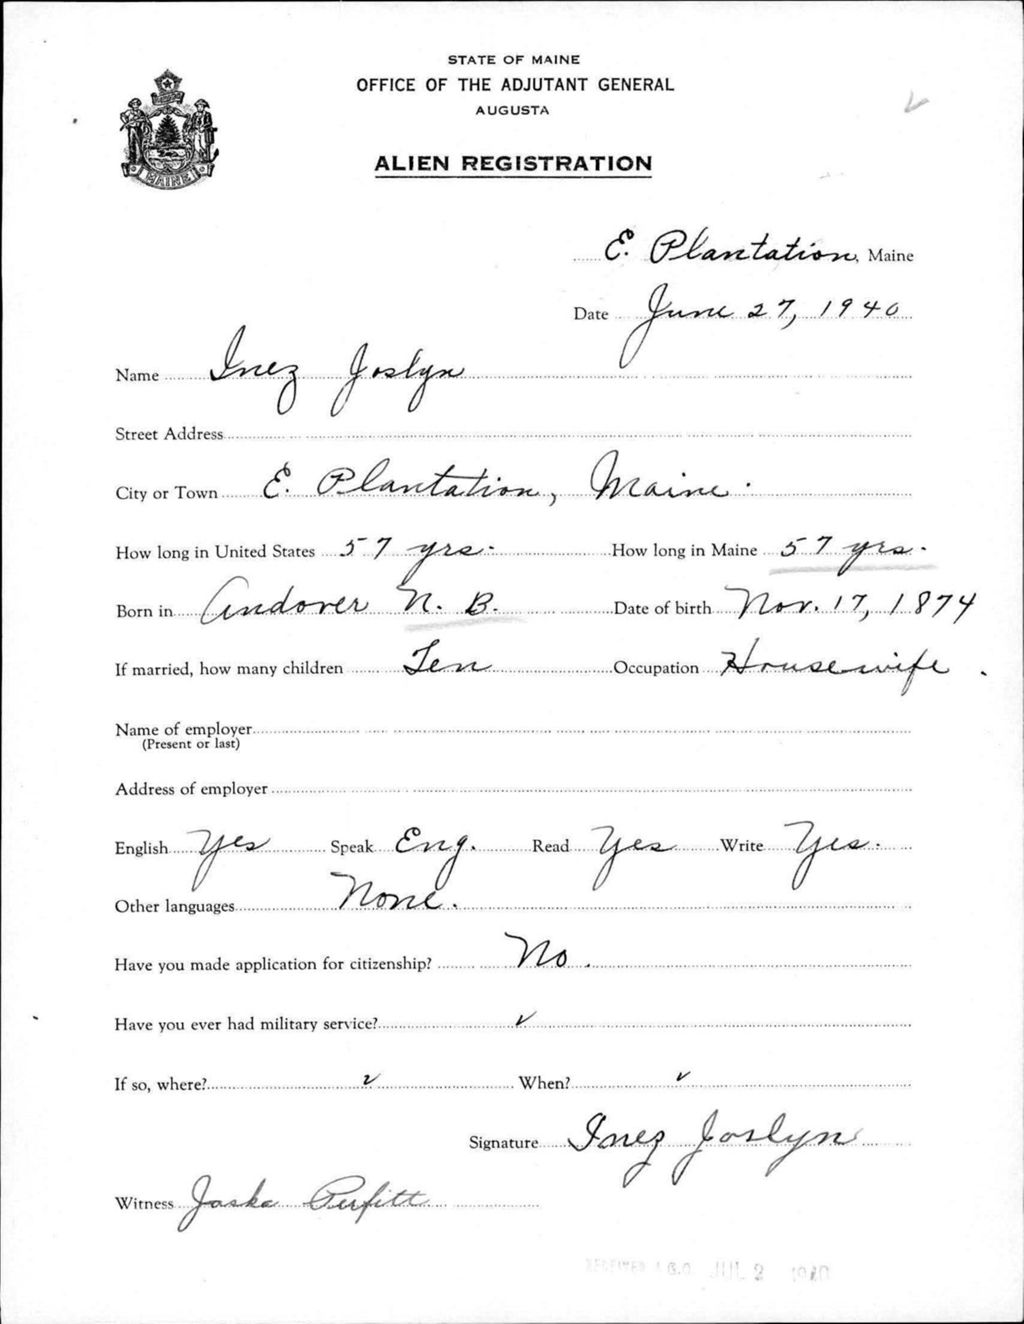 STATE OF MAINE
OFFICE OF THE ADJUTANT GENERAL
AUGUSTA
ALIEN REGISTRATION
MAINE
E. Plantation, Maine
Date June 27, 1940
Name Inez Joslyn
Street Address
City or Town E. Plantation, Maine.
How long in United States 57 yrs. How long in Maine 57 yrs.
Born in Andover N. B. Date of birth Nov. 17, 1874
If married, how many children Ten Occupation Housewife.
Name of employer
(Present or last)
Address of employer
English Yes Speak Eng. Read Yes Write Yes.
Other languages None.
Have you made application for citizenship? No.
Have you ever had military service? ✓
If so, where? ✓ When? ✓
Signature Inez Joslyn
Witness Perfitt
RECEIVED A.G.O. JUL 2 1940